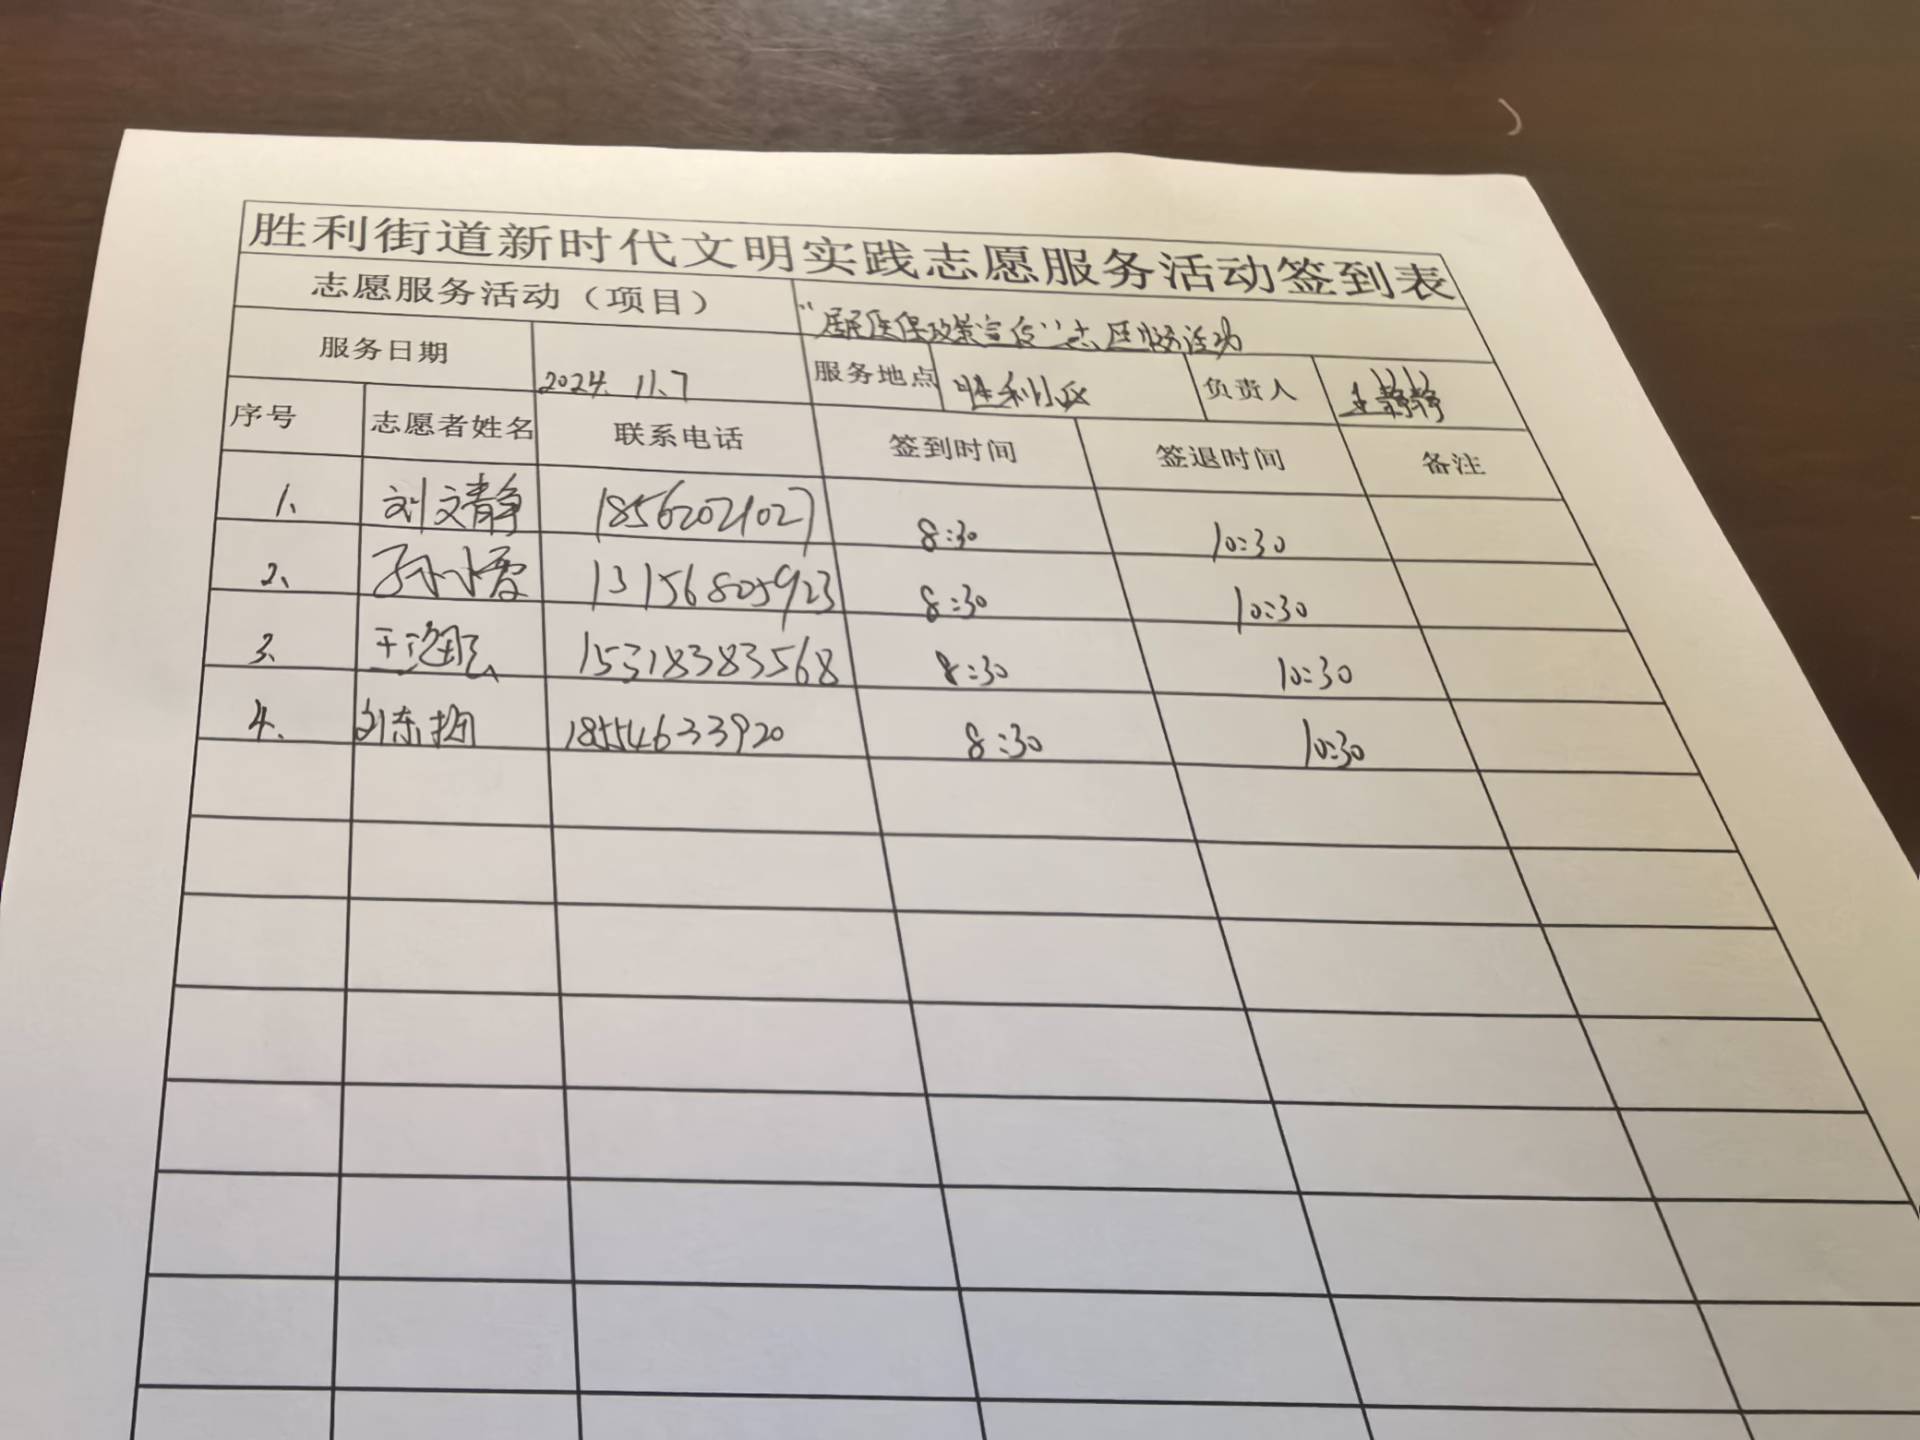 胜利街道新时代文明实践志愿服务活动签到表
志愿服务活动（项目） “居民医保政策宣传”志愿服务活动
服务日期 2024.11.7 服务地点 胜利小区 负责人 王静静
序号 志愿者姓名 联系电话 签到时间 签退时间 备注
1、 刘文静 18562021027 8:30 10:30
2、 孙小雪 13156805923 8:30 10:30
3、 王 15318383568 8:30 10:30
4、 刘东梅 18554633920 8:30 10:30